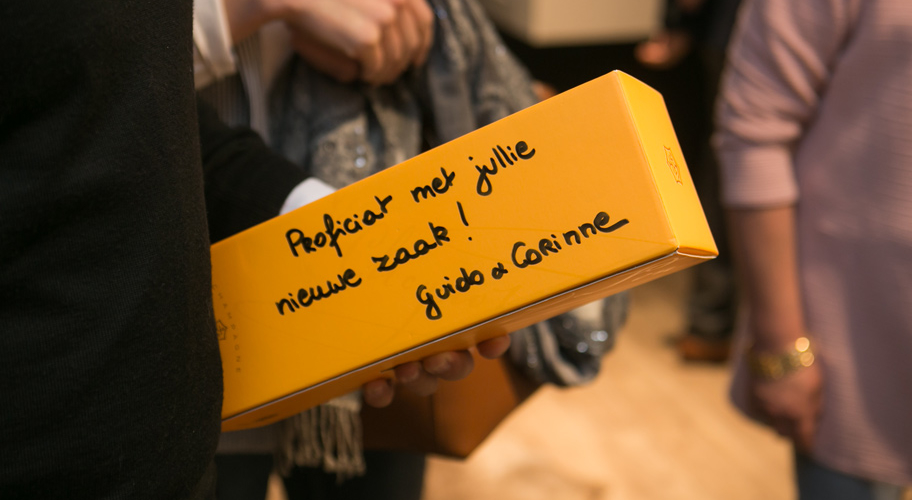 Proficiat met jullie
nieuwe zaak !
Guido & Corinne